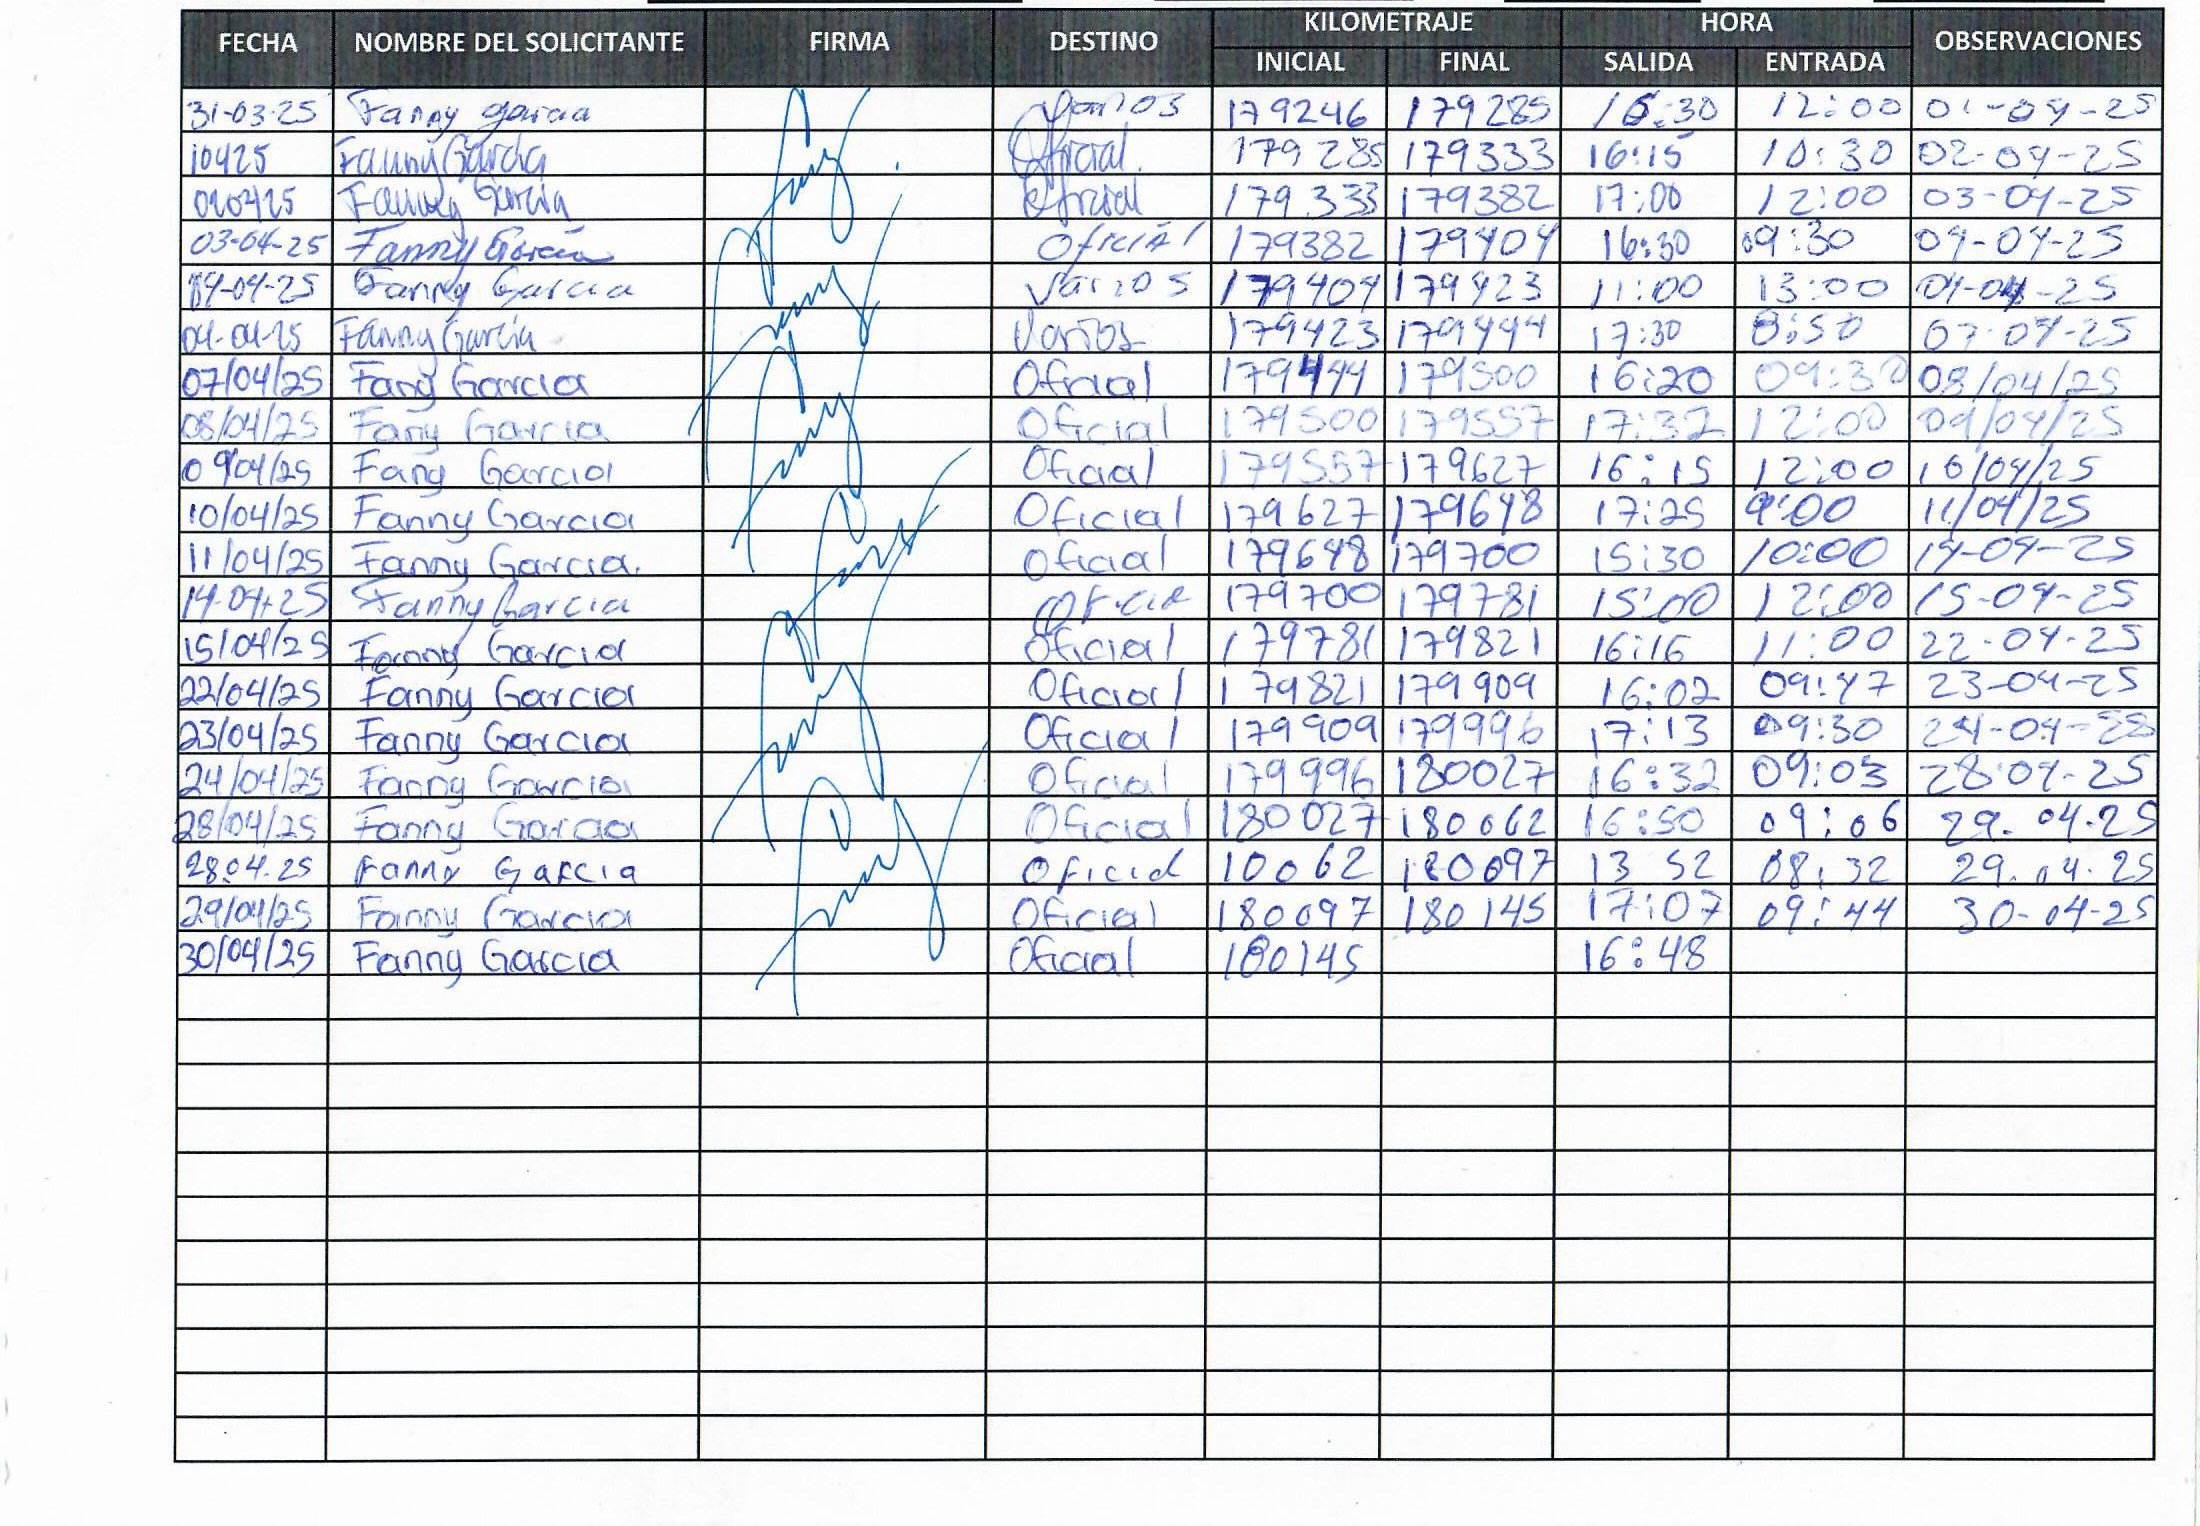 FECHA NOMBRE DEL SOLICITANTE FIRMA DESTINO KILOMETRAJE HORA OBSERVACIONES
INICIAL FINAL SALIDA ENTRADA
31-03-25 Fanny Garcia Varios 179246 179285 16:30 12:00 01-04-25
10425 Fanny García Oficial. 179285 179333 16:15 10:30 02-04-25
020425 Fanny García Oficial 179333 179382 17:00 12:00 03-04-25
03-04-25 Fanny García Oficial 179382 179404 16:30 09:30 04-04-25
04-04-25 Fanny Garcia Varios 179404 179423 11:00 13:00 04-04-25
04-04-25 Fanny García Varios 179423 179444 17:30 8:50 07-04-25
07/04/25 Fany Garcia Oficial 179444 179500 16:20 09:30 08/04/25
08/04/25 Fany Garcia Oficial 179500 179557 17:32 12:00 09/04/25
09/04/25 Fany Garcia Oficial 179557 179627 16:15 12:00 10/04/25
10/04/25 Fanny Garcia Oficial 179627 179648 17:25 9:00 11/04/25
11/04/25 Fanny Garcia. Oficial 179648 179700 15:30 10:00 14-04-25
14-04-25 Fanny Garcia 179700 179781 15:00 12:00 15-04-25
15/04/25 Fanny Garcia Oficial 179781 179821 16:16 11:00 22-04-25
22/04/25 Fanny Garcia Oficial 179821 179909 16:02 09:47 23-04-25
23/04/25 Fanny Garcia Oficial 179909 179996 17:13 09:30 24-04-25
24/04/25 Fanny Garcia Oficial 179996 180027 16:32 09:03 28-04-25
28/04/25 Fanny Garcia Oficial 180027 180062 16:50 09:06 29.04.25
28.04.25 Fanny Garcia Oficial 10062 180097 13 52 08:32 29.04.25
29/04/25 Fanny Garcia Oficial 180097 180145 17:07 09:44 30-04-25
30/04/25 Fanny Garcia Oficial 180145 16:48